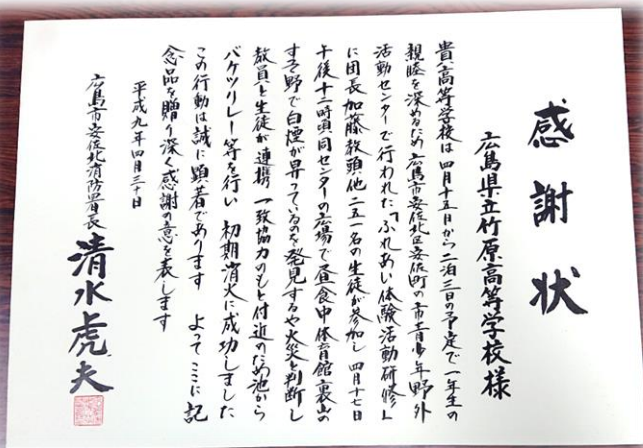 感謝状
広島県立竹原高等学校様
貴高等学校は四月十五日から二泊三日の予定で一年生の
親睦を深めるため広島市安佐北区安佐町の市青少年野外
活動センターで行われた「ふれあい体験活動研修」
に団長加藤教頭他二五一名の生徒が参加し四月十七日
午後十二時頃同センターの広場で昼食中体育館裏山の
すそ野で白煙が昇っているのを発見するや火災と判断し
教員と生徒が連携一致協力のもと付近のため池から
バケツリレー等を行い初期消火に成功しました
この行動は誠に顕著であります よってここに記
念品を贈り深く感謝の意を表します
平成九年四月三十日
広島市安佐北消防署長
清水虎夫